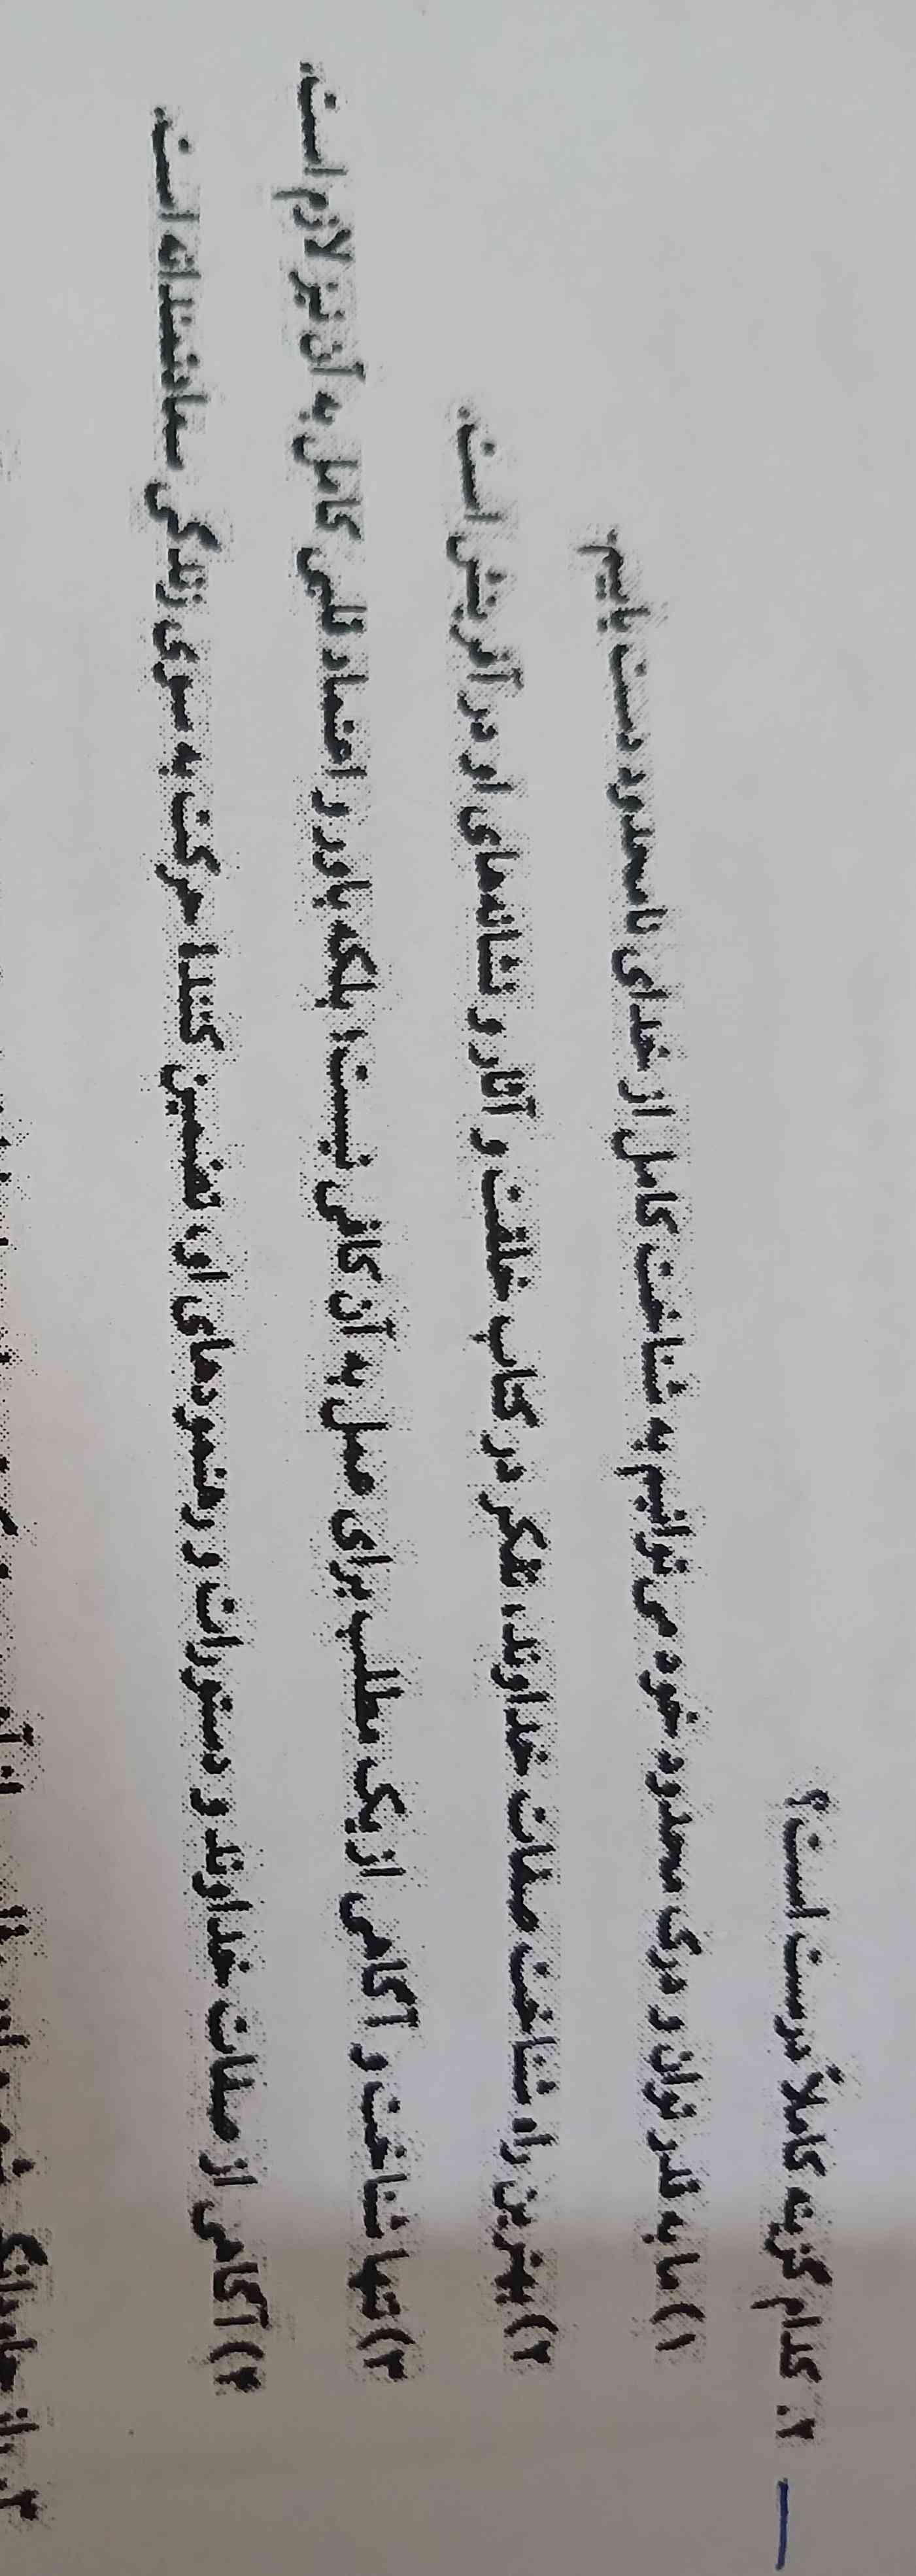 ۲. کدام گزینه کاملاً درست است؟
۱) ما به قدر توان و درک محدود خود می‌توانیم به شناخت کامل از خدای نامحدود دست یابیم.
۲) بهترین راه شناخت صفات خداوند، تفکر در کتاب خلقت و آثار و نشانه‌های او در آفرینش است.
۳) تنها شناخت و آگاهی از یک مطلب برای عمل به آن کافی نیست؛ بلکه باور و اعتماد قلبی کامل به آن نیز لازم است.
۴) آگاهی از صفات خداوند و دستورات و رهنمودهای او، تضمین کنندهٔ حرکت به سوی زندگی سعادتمندانه است.